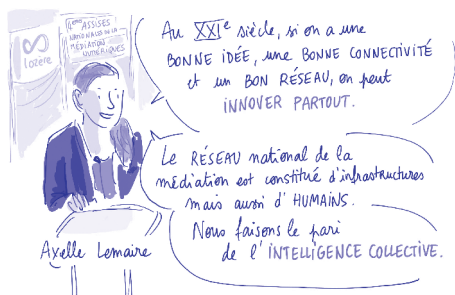 4èmes ASSISES
NATIONALES DE LA
MÉDIATION
NUMÉRIQUES
lozère
Au XXIe siècle, si on a une
BONNE IDÉE, une BONNE CONNECTIVITÉ
et un BON RÉSEAU, on peut
INNOVER PARTOUT.
Le RÉSEAU national de la
médiation est constitué d'infrastructures
mais aussi d'HUMAINS.
Nous faisons le pari
de l'INTELLIGENCE COLLECTIVE.
Axelle Lemaire